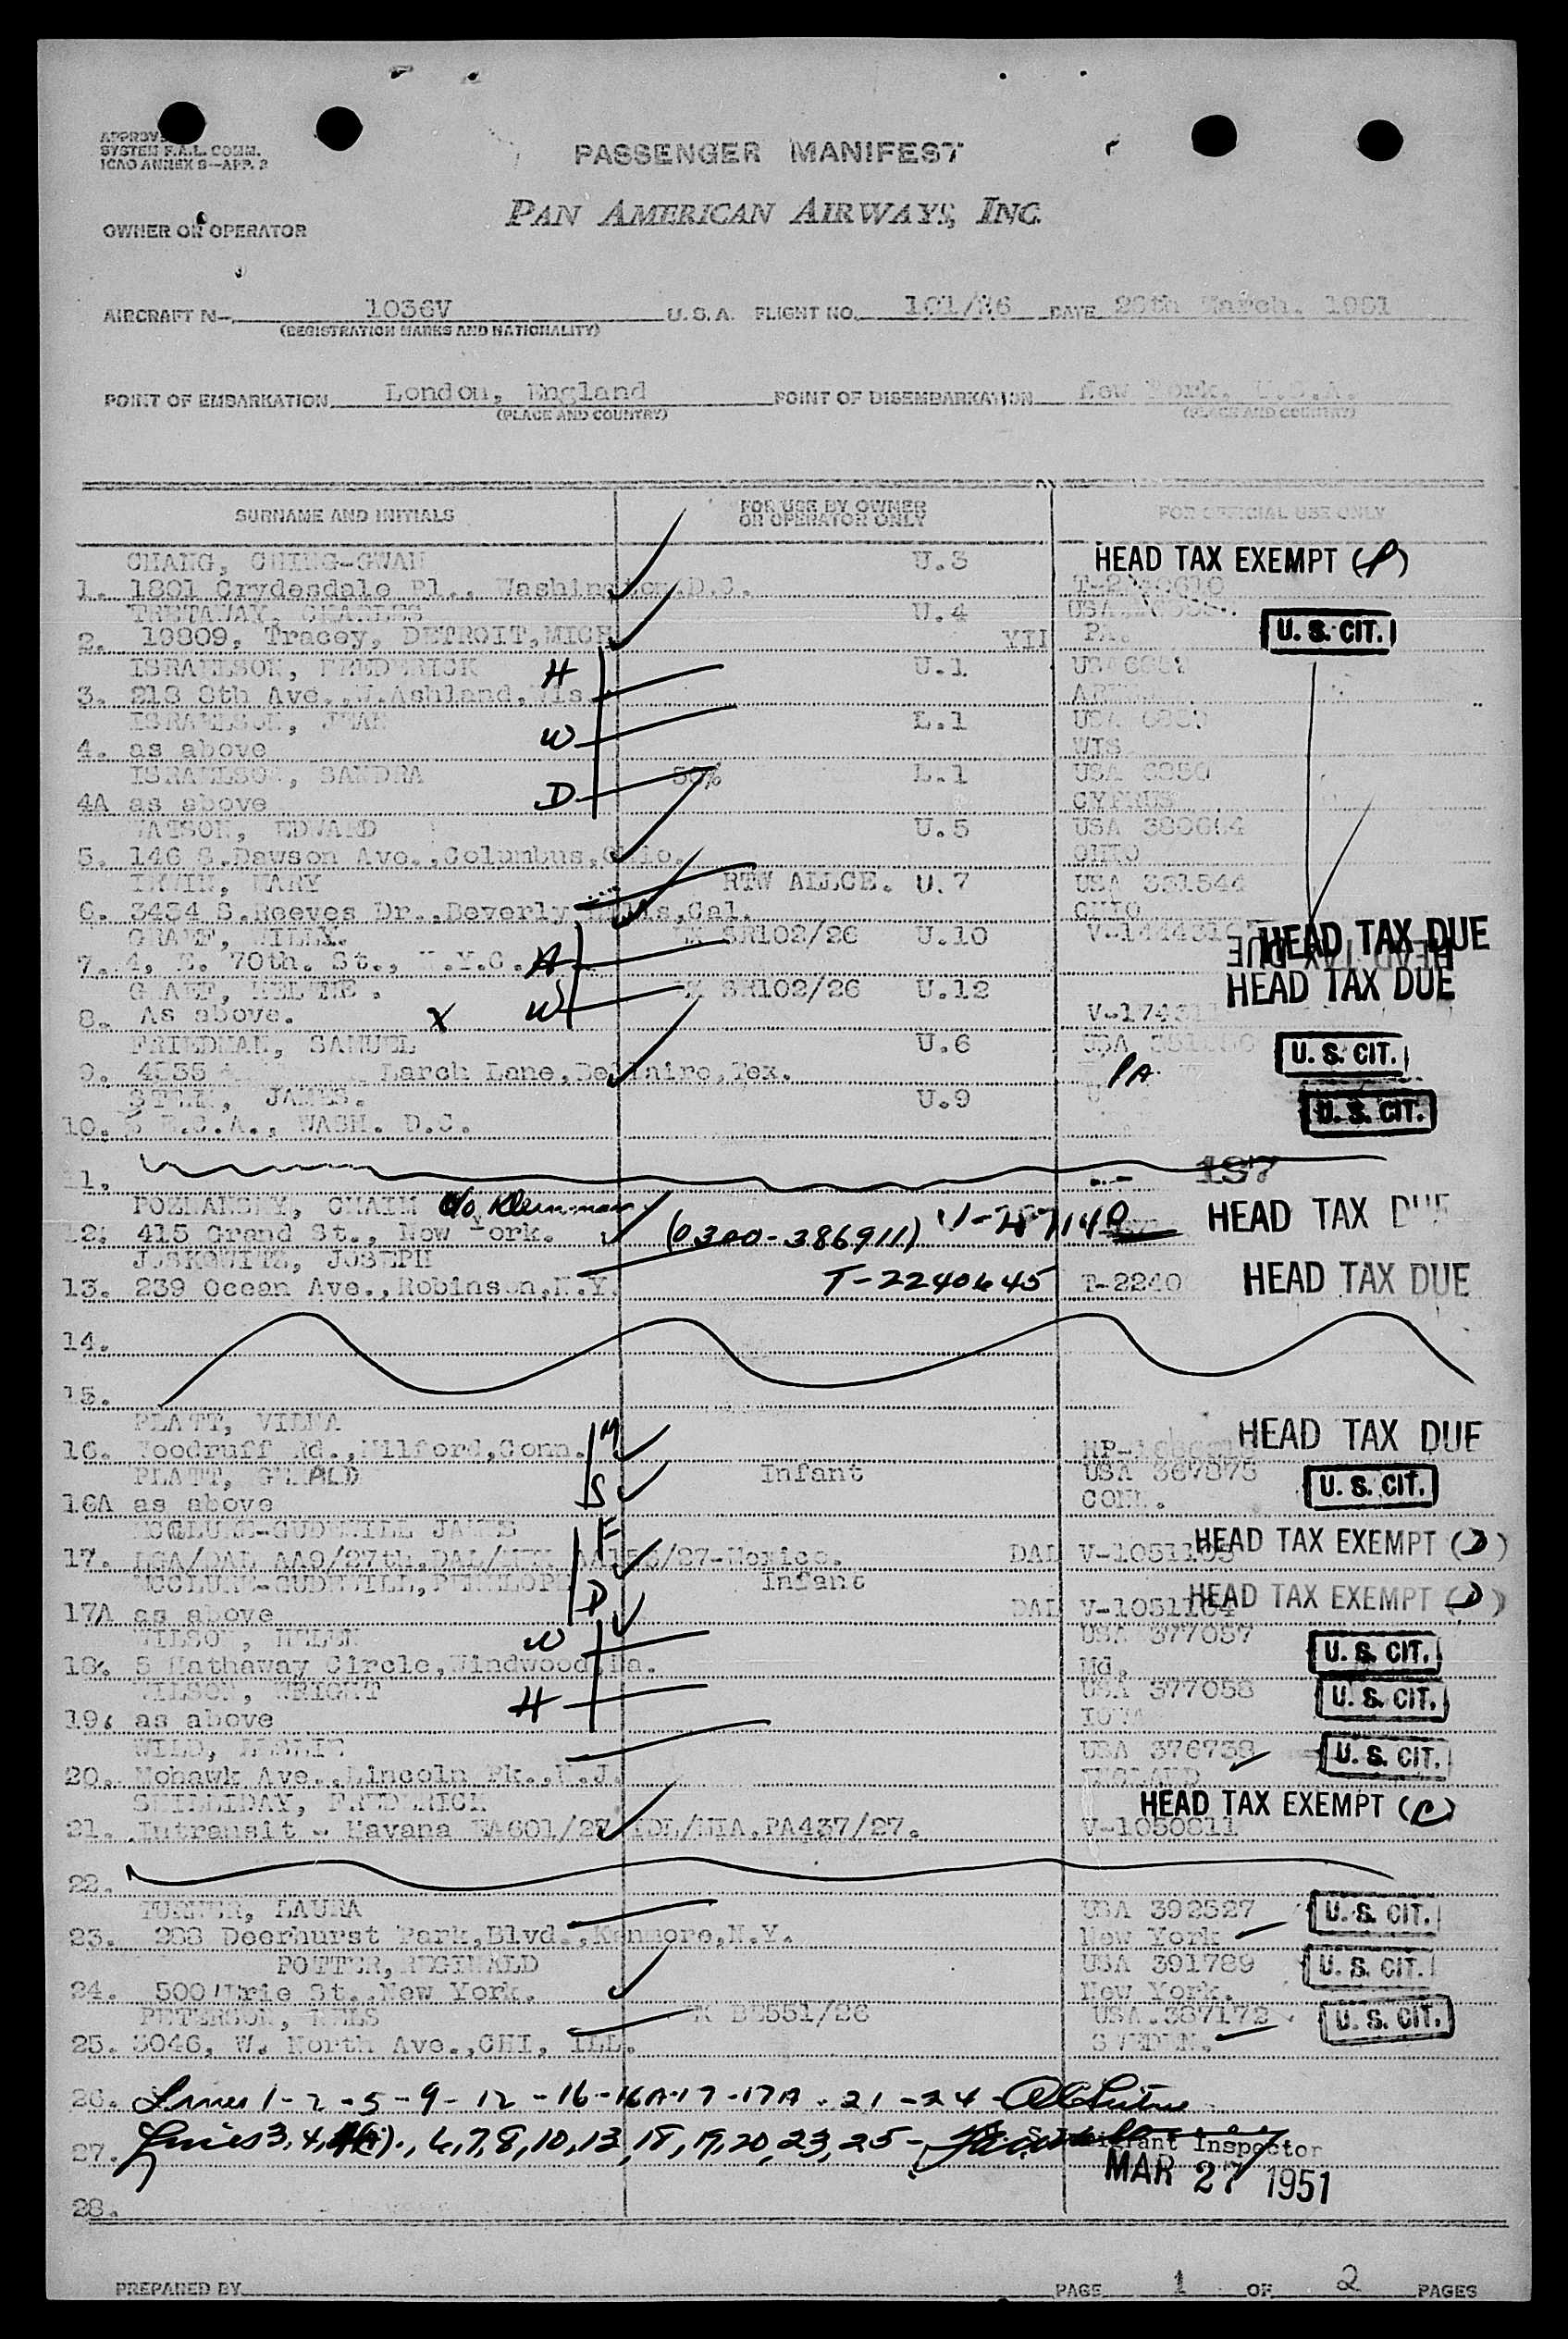 SYSTEM F.A.L. COMM.
ICAO ANNEX 9—APP. 2
PASSENGER MANIFEST
PAN AMERICAN AIRWAYS, INC.
OWNER OR OPERATOR
AIRCRAFT N- 1036V U. S. A. FLIGHT NO. 101/26 DATE 26th March, 1951
(REGISTRATION MARKS AND NATIONALITY)
POINT OF EMBARKATION London, England POINT OF DISEMBARKATION New York, U.S.A.
(PLACE AND COUNTRY) (PLACE AND COUNTRY)
SURNAME AND INITIALS FOR USE BY OWNER OR OPERATOR ONLY FOR OFFICIAL USE ONLY
CHANG, CHING-GWAN U.3 HEAD TAX EXEMPT (P)
1. 1801 Crydesdale Pl., Washington,D.C.
TRETAWAY, CHARLES U.4 USA
2. 19809, Tracey, DETROIT,MICH YII PA. U. S. CIT.
ISRAELSON, FREDERICK H U.1
3. 213 8th Ave.,W.Ashland,Wis.
ISRAELSON, JEAN W L.1 USA
4. as above WIS
ISRAELSON, SANDRA 50% L.1 USA 6850
4A as above D CYPRUS
WATSON, EDWARD U.5 USA 380664
5. 146 S.Dawson Ave.,Columbus,Ohio. OHIO
IRWIN, MARY RTW ALLCE. U.7 USA 331544
6. 3434 S.Reeves Dr.,Beverly Hills,Cal. OHIO
GRAEF, WILLY. SR102/26 U.10 HEAD TAX DUE
7. 4, E. 70th. St., N.Y.C. H HEAD TAX DUE
GRAEF, HELENE. SR102/26 U.12 HEAD TAX DUE
8. As above. X W
FRIEDMAN, SAMUEL U.6 USA U. S. CIT.
9. Larch Lane,Bellaire,Tex. PA
JAMES. U.9 U. S. CIT.
10. E.C.A., WASH. D.C.
11. 197
POZNANSKY, CHAIM c/o Kleinman
12. 415 Grand St., New York. (0300-386911) HEAD TAX DUE
JOSKOWITZ, JOSEPH T-2240645
13. 239 Ocean Ave.,Robinson,N.Y. T-2240 HEAD TAX DUE
14.
15.
PLATT, VILMA M HEAD TAX DUE
16. Woodruff Rd.,Milford,Conn.
PLATT, GERALD Infant USA 367875 U. S. CIT.
16A as above S CONN.
MCCLURE-GUDEWILL JAMES F HEAD TAX EXEMPT (D)
17. DAL V-1051163
MCCLURE-GUDEWILL,PENELOPE Infant HEAD TAX EXEMPT (D)
17A as above D DAL V-1051164
WILSON, HELEN W USA 377057 U. S. CIT.
18. 5 Hathaway Circle,Windwood,Pa. Md.
WILSON, WRIGHT H USA 377058 U. S. CIT.
19. as above IOWA
WILD, LESLIE USA 376738 U. S. CIT.
20. Mohawk Ave.,Lincoln Pk.,N.J. ENGLAND
SHILLIDAY, FREDERICK HEAD TAX EXEMPT (C)
21. Intransit - Havana EA601/27 IDL/MIA,PA437/27. V-1050811
22.
TURNER, LAURA USA 392527 U. S. CIT.
23. 288 Deerhurst Park,Blvd.,Kenmore,N.Y. New York
POTTER, REGINALD USA 391789 U. S. CIT.
24. 500 Erie St.,New York. New York.
PETERSON, NELS USA.387172 U. S. CIT.
25. 3046, W. North Ave.,CHI, ILL. SWEDEN.
26. Lines 1-2-5-9-12-16-16A-17-17A-21-24
27. Lines 3,4, 6,7,8,10,13,18,19,20,23,25- Immigrant Inspector
MAR 27 1951
28.
PREPARED BY PAGE 1 OF 2 PAGES